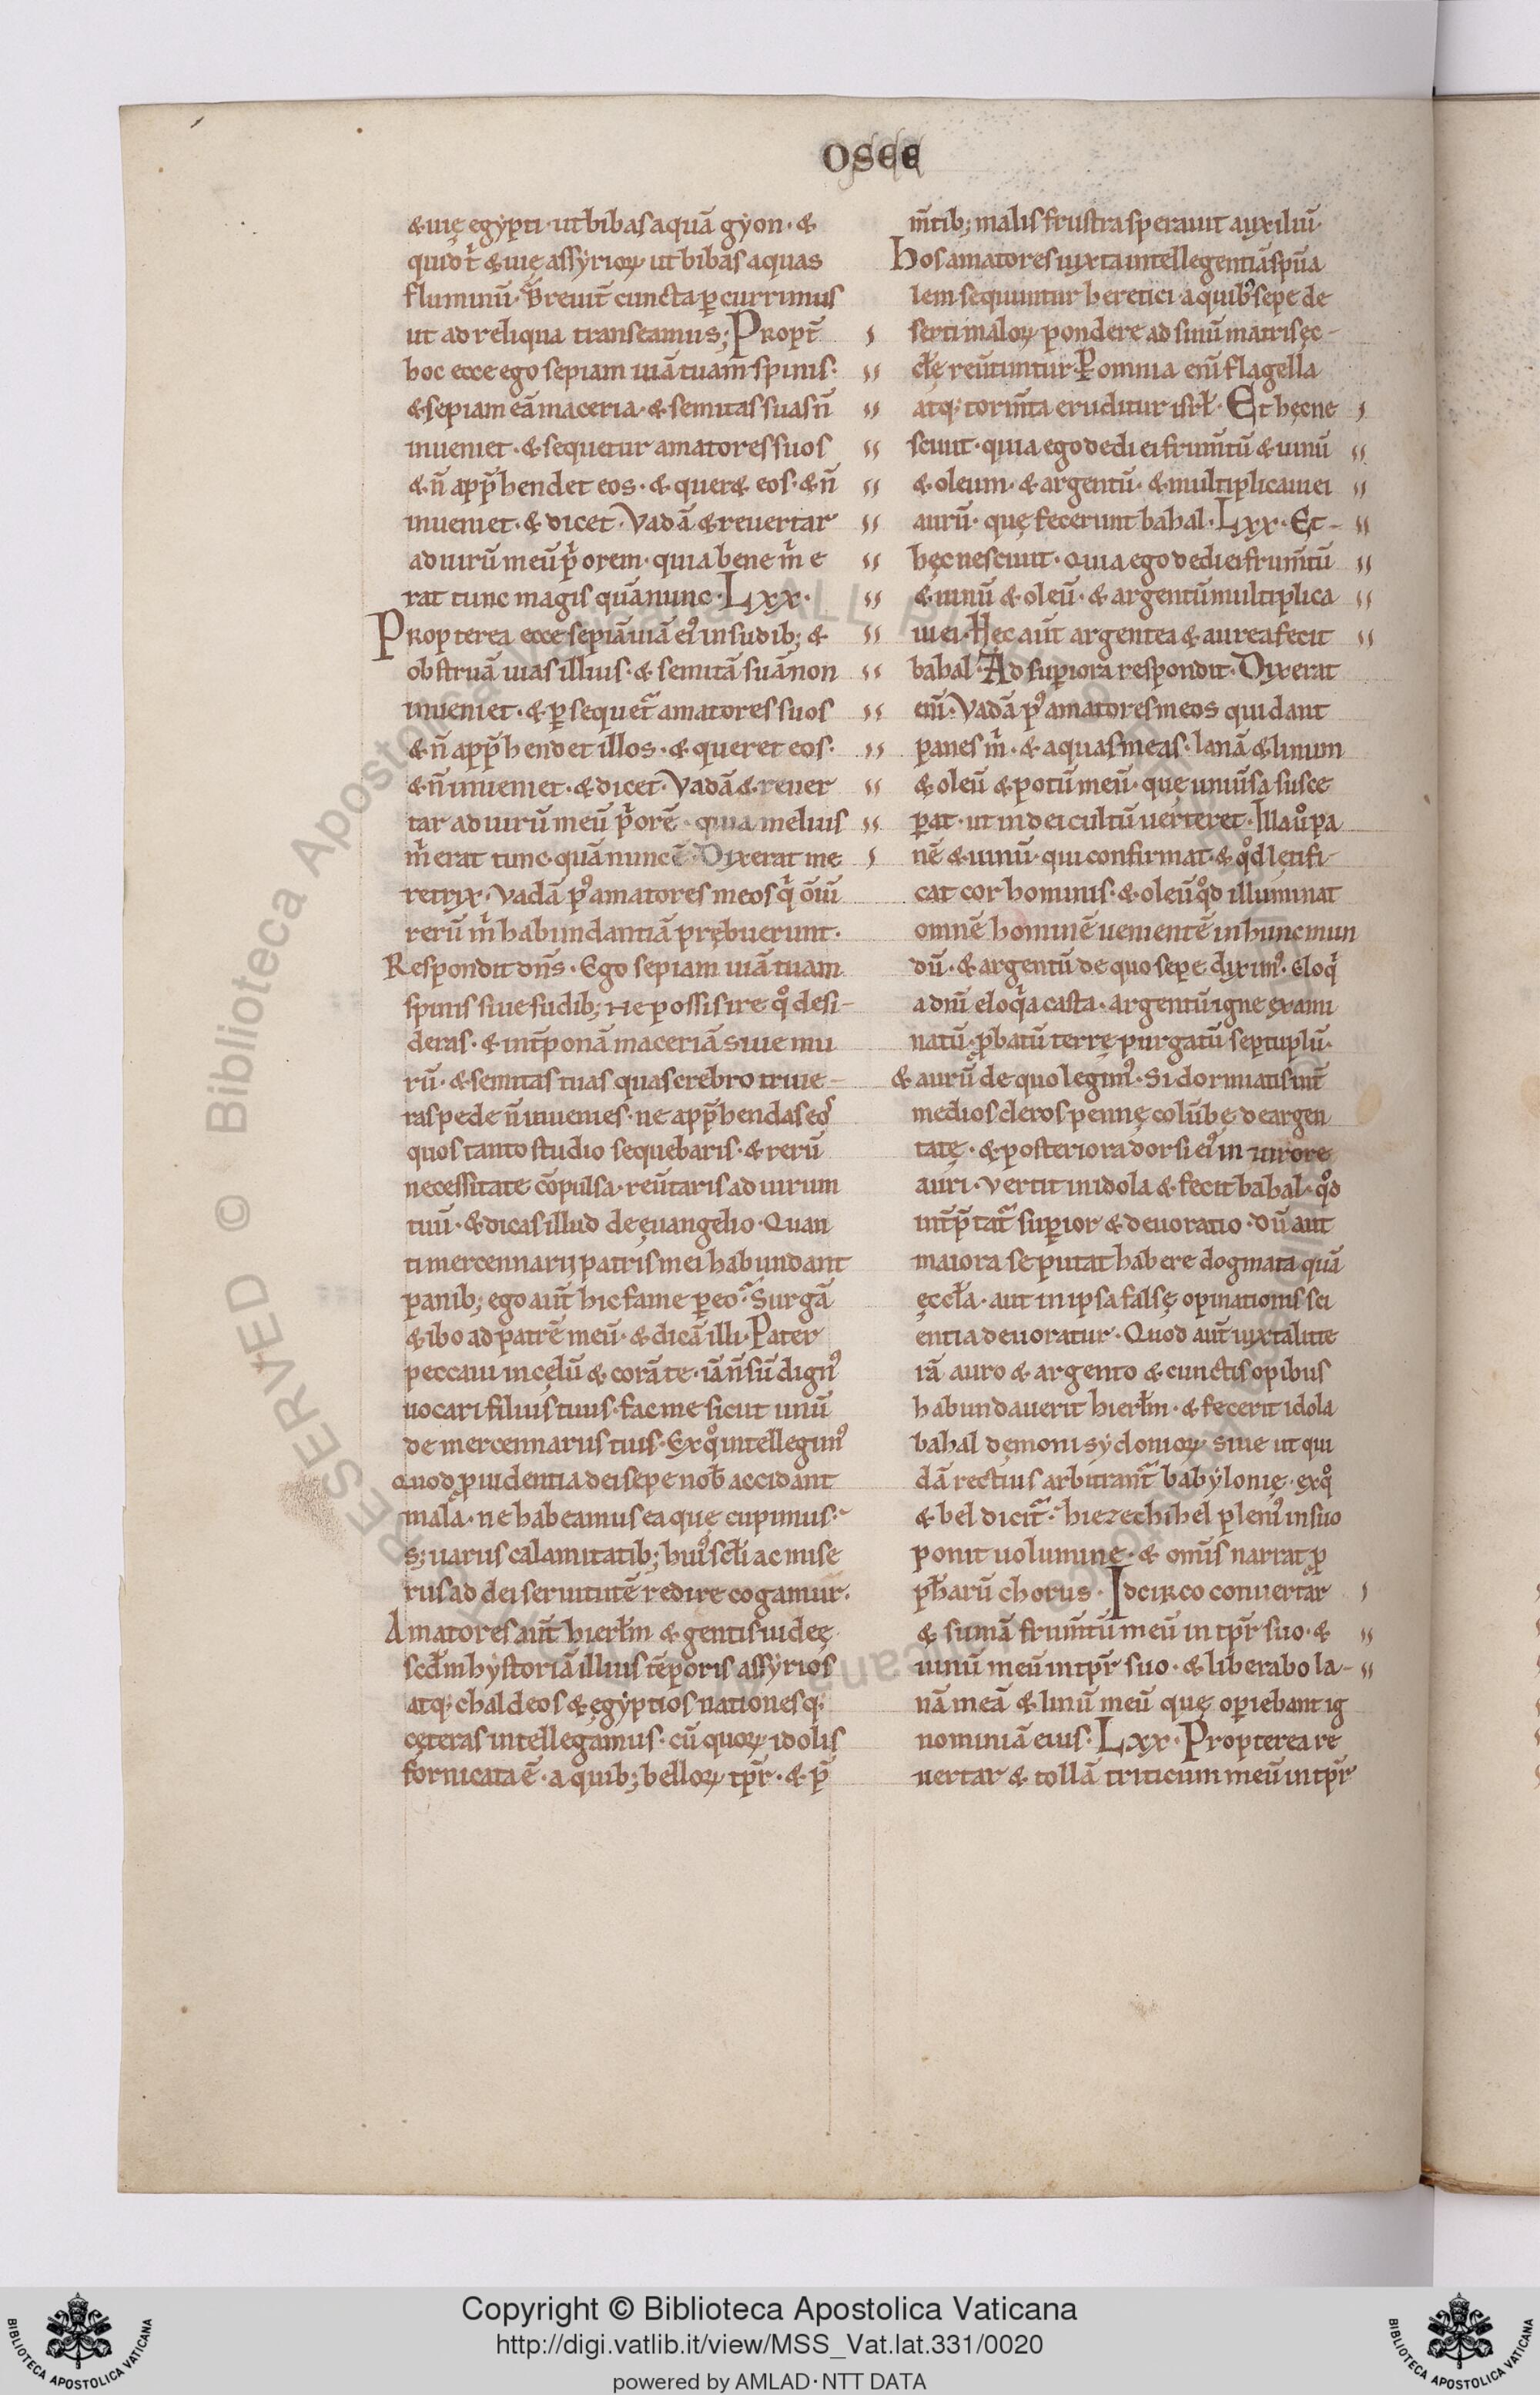 OSEE
& uię egẏpti · ut bibas aquā gẏon · &
quid t̄ & uię assẏrioꝝ ut bibas aquas
fluminū · Breuit̄ cuncta ꝑcurrimus
ut ad reliqua transeamus; Propt̄
hoc ecce ego sepiam uiā tuam spinis ·
& sepiam eā maceria · & semitas suas n̄
inueniet · & sequetur amatores suos
& n̄ app̄hendet eos · & quer& eos · & n̄
inueniet · & dicet · Vadā & revertar
ad uirū meū p'orem · quia bene m' e
rat tunc magis quā nunc · Lxx ·
Propterea ecce sepiā uiā ei' in sudib; &
obstruā uias illius · & semitā suā non
inueniet · & ꝑsequet̄ amatores suos
& n̄ app̄hendet illos · & queret eos ·
& n̄ inueniet · & dicet · Vadā & reuer
tar ad uirū meū p'orē · quia melius
m' erat tunc quā nunc ē · Dixerat me
retrix · Vadā p' amatores meos q' om̄
rerū m' habundantiā prębuerunt ·
Respondit dn̄s · Ego sepiam uiā tuam
spinis siue sudib; ne possis ire q° desi-
deras · & int̄ponā maceriā siue mu
rū · & semitas tuas quas crebro triue-
ras pede n̄ inuenies · ne app̄hendas eos
quos tanto studio sequebaris · & rerū
necessitate cōpulsa · reūtaris ad uirum
tuū · & dicas illud de ęuangelio · Quan
ti mercennarij patris mei habundant
panib; ego aūt hic fame ꝑeo · Surgā
& ibo ad patrē meū · & dicā illi · Pater
peccaui in cęlū & corā te · iā n̄ sū dign'
uocari filius tuus · fac me sicut unū
de mercennariis tuis · Ex q° intellegim'
quod ꝓuidentia dei sepe nob̄ accidant
mala · ne habeamus ea quę cupimus ·
S; uariis calamitatib; hui' sc̄li ac mise
riis ad dei seruitutē redire cogamur ·
Amatores aūt hierłm & gentis iudeę
scd̄m hẏstoriā illius tēporis assẏrios
atq; chaldeos & ęgẏptios nationesq;
cęteras intellegamus · cū quoꝝ idolis
fornicata ē · a quib; belloꝝ tp̄r · & p̄
m̄tib; malis frustra sperauit auxiliū ·
Hos amatores iuxta intellegentiā spūa
lem sequuntur heretici · a quib' sepe de
serti maloꝝ pondere ad sinū matris ęc-
cłę reūtuntur · Ꝑ omnia eni flagella
atq; torm̄ta eruditur isrł · Et hęc ne
sciuit · quia ego dedi ei frum̄tū & uinū
& oleum · & argentū · & multiplicaui ei
aurū · quę fecerunt bahal · Lxx · Et
hęc nesciuit · quia ego dedi ei frum̄tū
& uinū & oleū · & argentū multiplica
ui ei · Hęc aūt argentea & aurea fecit
bahal · Ad superiora respondit · Dixerat
eni · Vadā p' amatores meos qui dant
panes m' · & aquas meas · lanā & linum
& oleū & potū meū · quę uniūsa susce
ꝑat · ut in dei cultū uerteret · Illa ū pa
nē & uinū · qui confirmat · & q°d lętifi-
cat cor hominis · & oleū q°d illuminat
omnē hominē uenientē in hunc mun
dū · & argentū de quo sepe dixim' · Eloq'
a dni eloq'a casta · argentū igne exami
natū · ꝓbatū terrę purgatū septuplū ·
& aurū de quo legim' · Si dormiatis int̄
medios cleros pennę colūbę deargen
tatę · & posteriora dorsi ei' in uirore
auri · Vertit in idola & fecit bahal · q°d
int̄p̄tat̄ superior & deuoratio · dū aut
maiora se putat habere dogmata quā
ęccła · aut in ipsa falsę opinationis sci
entia deuoratur · Quod aūt iuxta litte
rā auro & argento & cunctis opibus
habundauerit hierłm · & fecerit idola
bahal dęmoni sẏdonioꝝ siue ut qui
dā rectius arbitrant̄ babẏlonię · ex q°
& bel dicit̄ · hiezechihel plen' in suo
ponit uolumine · & omis narrat ꝓ
ph̄arū chorus · Idcirco convertar
& sumā frum̄tū meū in tp̄r suo · &
uinū meū in tp̄r suo · & liberabo la-
nā meā & linū meū quę oꝑiebant ig
nominiā eius · Lxx · Propterea re
uertar & tollā triticum meū in tp̄r
Copyright © Biblioteca Apostolica Vaticana
http://digi.vatlib.it/view/MSS_Vat.lat.331/0020
powered by AMLAD·NTT DATA